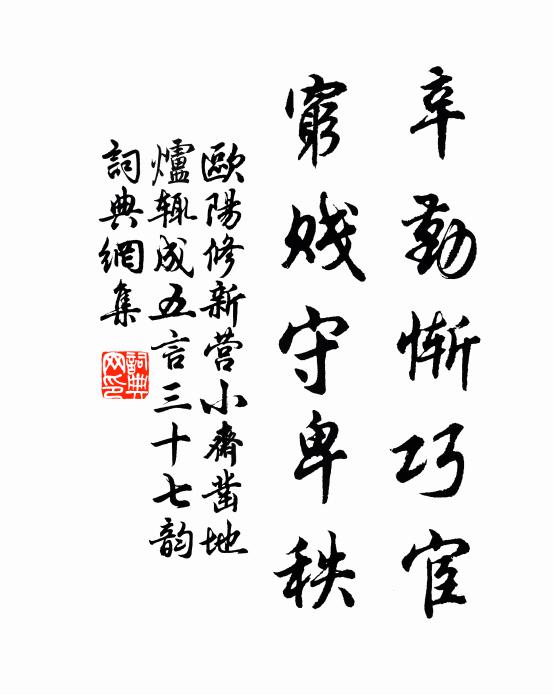 辛勤慚巧宦
窮賤守卑秩
歐陽修新營小齋凿地
爐輒成五言三十七韵
詞典網集
詞典网印